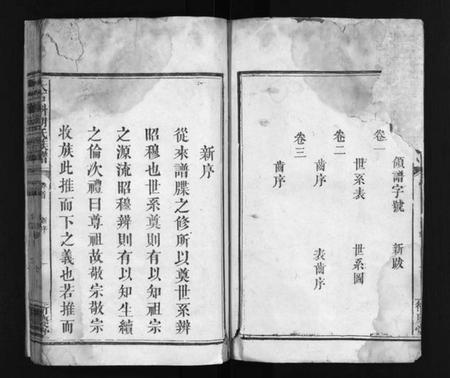 領譜字號 新跋
卷一
世系表 世系圖
卷二
齒序 表齒序
卷三
齒序
新序
從來譜牒之修所以奠世系辨
昭穆也世系奠則有以知祖宗
之源流昭穆辨則有以知生續
之倫次禮曰尊祖故敬宗敬宗
收族此推而下之義也若推而